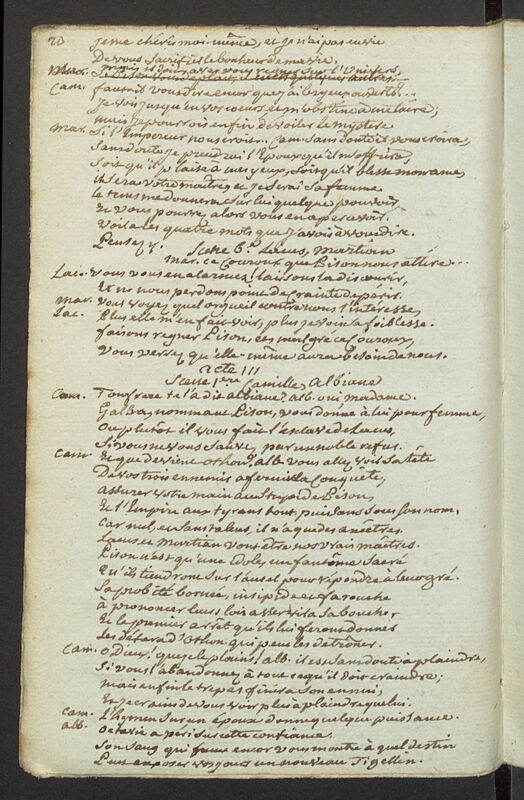 20 je me chéris moi-même, et je n'ai pas envie
De vous sacrifier le bonheur de ma vie,
Mar.
Cam. faut-il vous dire encor que j'ai les yeux ouverts..
Je vois jusqu'en vos coeurs, et m'obstine à me taire;
mais je pourrois enfin dévoiler le mystère
mar. Si l'Empereur nous croit... Cam. Sans doute il vous croira,
Sans doute je prendrai l'Epoux qu'il m'offrira,
Soit qu'il plaise à mes yeux, soit qu'il blesse mon ame,
il sera votre maître, et je serai sa femme
le tems me donnera sur lui quelque pouvoir,
Et vous pourrez alors vous en apercevoir.
Voila les quatre mots que j'avois à vous dire.
Pensez y.
Scene 6.e Lacus, martian
mar. ce Couroux que Pison nous attire...
Lac. vous vous en alarmez? laissons la discourir,
Et ne nous perdons point de crainte de périr.
mar. Vous voyez quel orgueil contre nous l'interesse,
Lac. Plus elle m'en fait voir, plus je vois sa foiblesse.
faisons regner Pison, et malgré ce Couroux,
Vous verrez qu'elle-même aura besoin de nous.
Acte III
Scene 1ere Camille, Albiane
Cam. Ton frere te l'a dit albiane? alb. oui madame.
Galba nomme Pison, vous donne à lui pour femme,
Ou plutôt il vous fait l'esclave de Lacus,
Si vous ne vous sauvez par un noble refus.
Cam. Et que devient othon? alb. vous allez voir sa tête
De vos trois ennemis affermir la Conquête,
assurer votre main au stupide Pison,
Et l'Empire aux tyrans tout puissans sous son nom,
Car nul, et sans talens, il n'a que des ancêtres.
Lacus, et Martian vont être nos vrais maîtres.
Pison n'est qu'une idole, un fantôme sacré
Qu'ils tiendront sur l'autel pour répondre à leur gré.
Sa probité bornée, insipide et farouche
à prononcer leurs lois asservira sa bouche,
Et le premier arrêt qu'ils lui feront donner
Les défera d'Othon qui peut les détrôner.
Cam. O Dieux! que je le plains! alb. il est sans doute à plaindre,
Si vous l'abandonnez à tout ce qu'il doit craindre;
mais enfin le trépas finira son ennui,
Et je crains de vous voir plus à plaindre que lui.
Cam. L'hymen sur un époux donne quelque puissance.
alb. octavie a péri sur cette confiance.
Son sang qui fume encor vous montre à quel destin
Peut exposer vos jours un nouveau Tigellin.